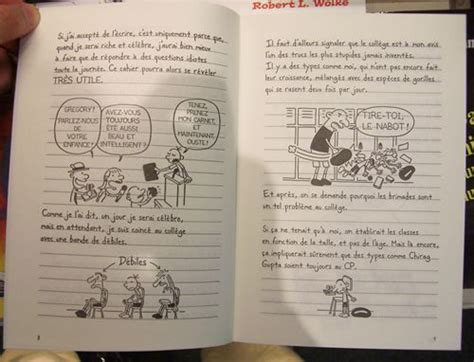 Robert L. Wolke
Si j'ai accepté de l'écrire, c'est uniquement parce que,
quand je serai riche et célèbre, j'aurai bien mieux
à faire que de répondre à des questions idiotes
toute la journée. Ce cahier pourra alors se révéler
TRÈS UTILE.
GREGORY !
PARLEZ-NOUS
DE VOTRE
ENFANCE !
AVEZ-VOUS
TOUJOURS
ÉTÉ AUSSI
BEAU ET
INTELLIGENT ?
TENEZ,
PRENEZ
MON CARNET,
ET
MAINTENANT,
OUSTE !
Comme je l'ai dit, un jour je serai célèbre,
mais en attendant, je suis coincé au collège
avec une bande de débiles.
Débiles
Il faut d'ailleurs signaler que le collège est à mon avis
l'un des trucs les plus stupides jamais inventés.
Il y a des types comme moi, qui n'ont pas encore fait
leur croissance, mélangés avec des espèces de gorilles
qui se rasent deux fois par jour.
TIRE-TOI,
LE NABOT !
Et après, on se demande pourquoi les brimades sont
un tel problème au collège.
Si ça ne tenait qu'à moi, on établirait les classes
en fonction de la taille, et pas de l'âge. Mais là encore,
ça impliquerait sûrement que des types comme Chirag
Gupta soient toujours au CP.